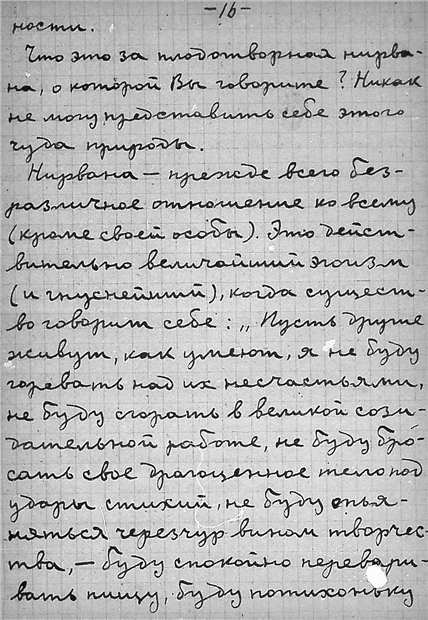 -16-
ности.
Что это за плодотворная нирва-
на, о которой Вы говорите? Никак
не могу представить себе этого
чуда природы.
Нирвана — прежде всего без-
различное отношение ко всему
(кроме своей особы). Это дейст-
вительно величайший эгоизм
(и гнуснейший), когда сущест-
во говорит себе: „Пусть другие
живут, как умеют, я не буду
горевать над их несчастьями,
не буду сгорать в великой сози-
дательной работе, не буду бро-
сать свое драгоценное тело под
удары стихий, не буду опья-
няться чересчур вином творчес-
тва, — буду спокойно перевари-
вать пищу, буду потихоньку